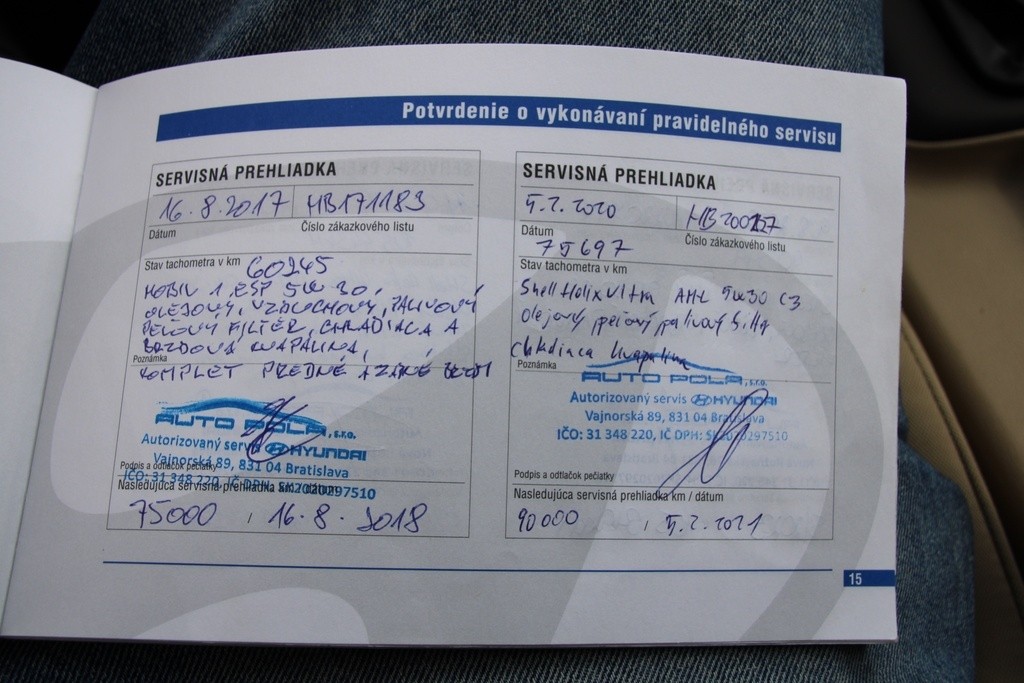 Potvrdenie o vykonávaní pravidelného servisu
SERVISNÁ PREHLIADKA
16.8.2017 HB171183
Dátum Číslo zákazkového listu
Stav tachometra v km 60245
MOBIL 1 ESP 5W30,
OLEJOVÝ, VZDUCHOVÝ, PALIVOVÝ
PEĽOVÝ FILTER, CHLADIACA A
BRZDOVÁ KVAPALINA,
Poznámka
KOMPLET PREDNÉ A ZADNÉ
AUTO POLA, s.r.o.
Autorizovaný servis HYUNDAI
Vajnorská 89, 831 04 Bratislava
Podpis a odtlačok pečiatky
IČO: 31 348 220, IČ DPH: SK2020297510
Nasledujúca servisná prehliadka km / dátum
75000 / 16.8.2018
SERVISNÁ PREHLIADKA
5.2.2020
Dátum Číslo zákazkového listu
75697
Stav tachometra v km
Shell Helix Ultra AML 5W30 C3
olejový peľový palivový filter
Chladiaca kvapalina
Poznámka
AUTO POLA, s.r.o.
Autorizovaný servis HYUNDAI
Vajnorská 89, 831 04 Bratislava
IČO: 31 348 220, IČ DPH: SK2020297510
Podpis a odtlačok pečiatky
Nasledujúca servisná prehliadka km / dátum
90000 / 5.2.2021
15